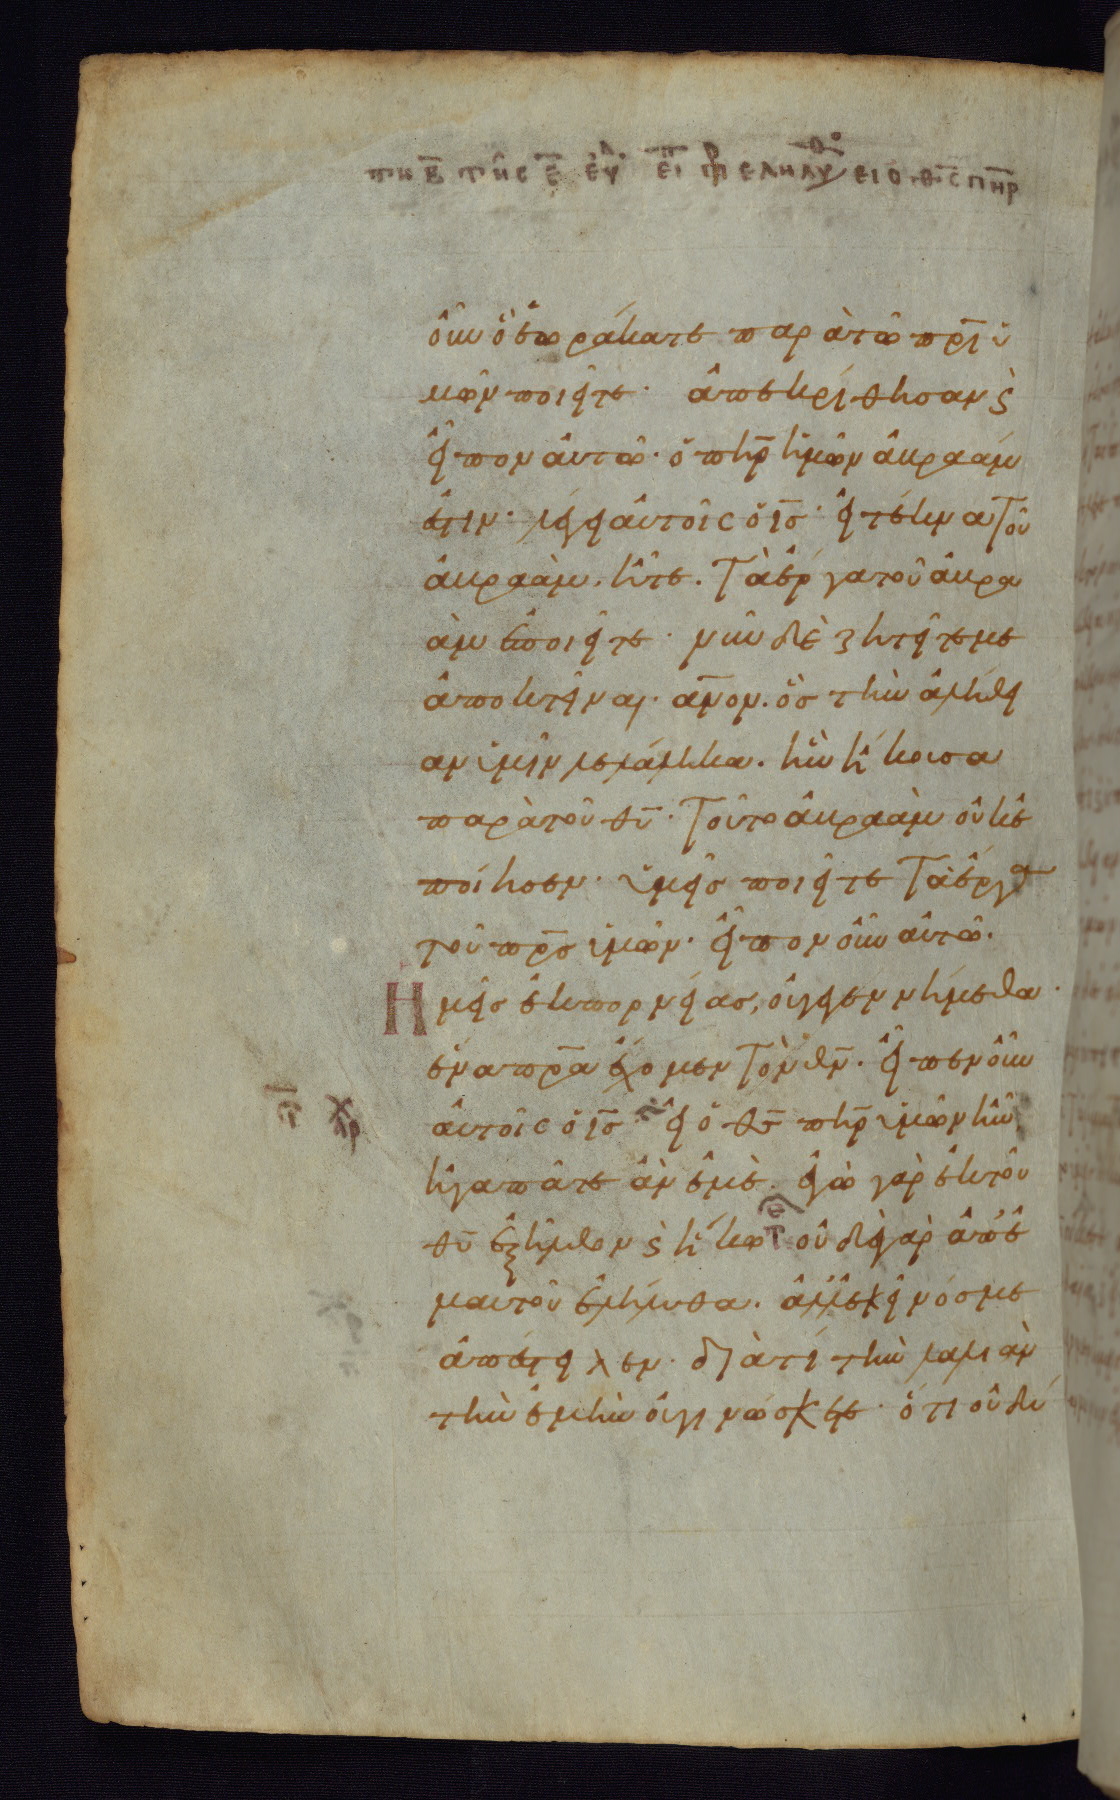 τη β̅ τῆς ε̅ ἑβδ εἶπ κ πρ ἐληλυθο εἰ ὁ θ̅ς̅ π̅η̅ρ̅
οὖν ὃ ἑωράκατε παρὰ τῶ π̅ρ̅ι̅ ὑ
μῶν ποιεῖτε · ἀπεκρίθησαν ϛ
εἶπον αὐτῶ · ὁ π̅η̅ρ̅ ἡμῶν ἀβραάμ
ἐστιν · λέγει αὐτοῖς ὁ ι̅ς̅ · εἰ τέκνα τοῦ
ἀβραὰμ ἦτε · τὰ ἔργα τοῦ ἀβρα
ὰμ ἐποιεῖτε · νῦν δὲ ζητεῖτε με
ἀποκτεῖναι · α̅ν̅ο̅ν̅ · ὃς τὴν ἀλήθει
αν ὑμῖν λελάληκα · ἣν ἤκουσα
παρὰ τοῦ θ̅υ̅ · τοῦτο ἀβραὰμ οὐκ ἐ
ποίησεν · ὑμεῖς ποιεῖτε τὰ ἔργα
τοῦ π̅ρ̅ς̅ ὑμῶν · εἶπον οὖν αὐτῶ ·
Ημεῖς ἐκ πορνείας, οὐ γεγεννήμεθα ·
ἕνα π̅ρ̅α̅ ἔχομεν τὸν θ̅ν̅ · εἶπεν οὖν
αὐτοῖς ὁ ι̅ς̅ · εἰ ὁ θ̅ς̅ π̅η̅ρ̅ ὑμῶν ἦν
ἠγαπᾶτε ἂν ἐμὲ · ἐγὼ γὰρ ἐκ τοῦ
θ̅υ̅ ἐξῆλθον ϛ ἥκω · οὐδὲ γὰρ ἀπ᾽ ἐ
μαυτοῦ ἐλήλυθα · ἀλλ᾽ ἐκεῖνός με
ἀπέστειλεν · διὰ τί τὴν λαλιὰν
τὴν ἐμὴν οὐ γινώσκετε · ὅτι οὐ δύ